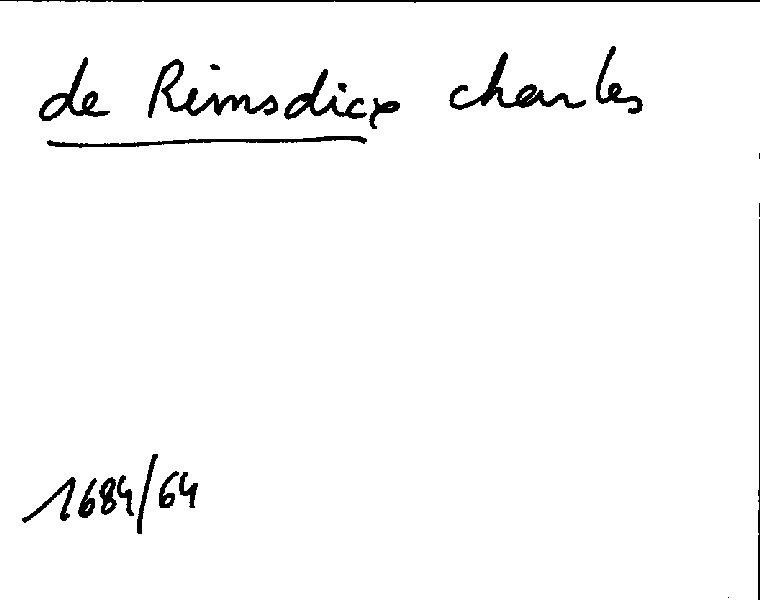 de Rimsdicx charles
1684/64